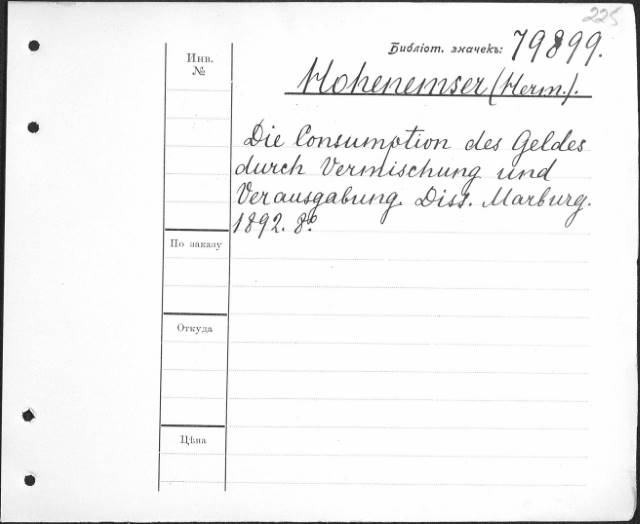 225
Библіот. значекъ: 79899.
Инв.
№
Hohenemser (Herm.).
Die Consumption des Geldes
durch Vermischung und
Verausgabung. Diss. Marburg.
1892. 8º.
По заказу
Откуда
Цѣна